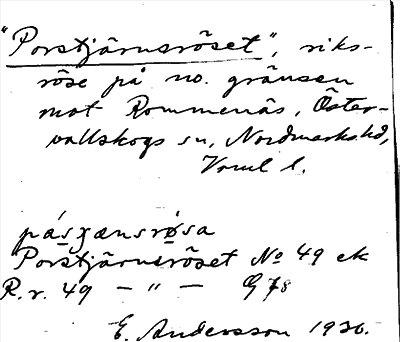 "Porstjärnsröset", riks-
röse på no. gränsen
mot Rommenäs, Öster-
vallskogs sn, Nordmarks hd,
Värml l.
pásʒænsrøsa
Porstjärnsröset No 49 ek
R.r. 49 — " — G 78
E. Andersson 1930.